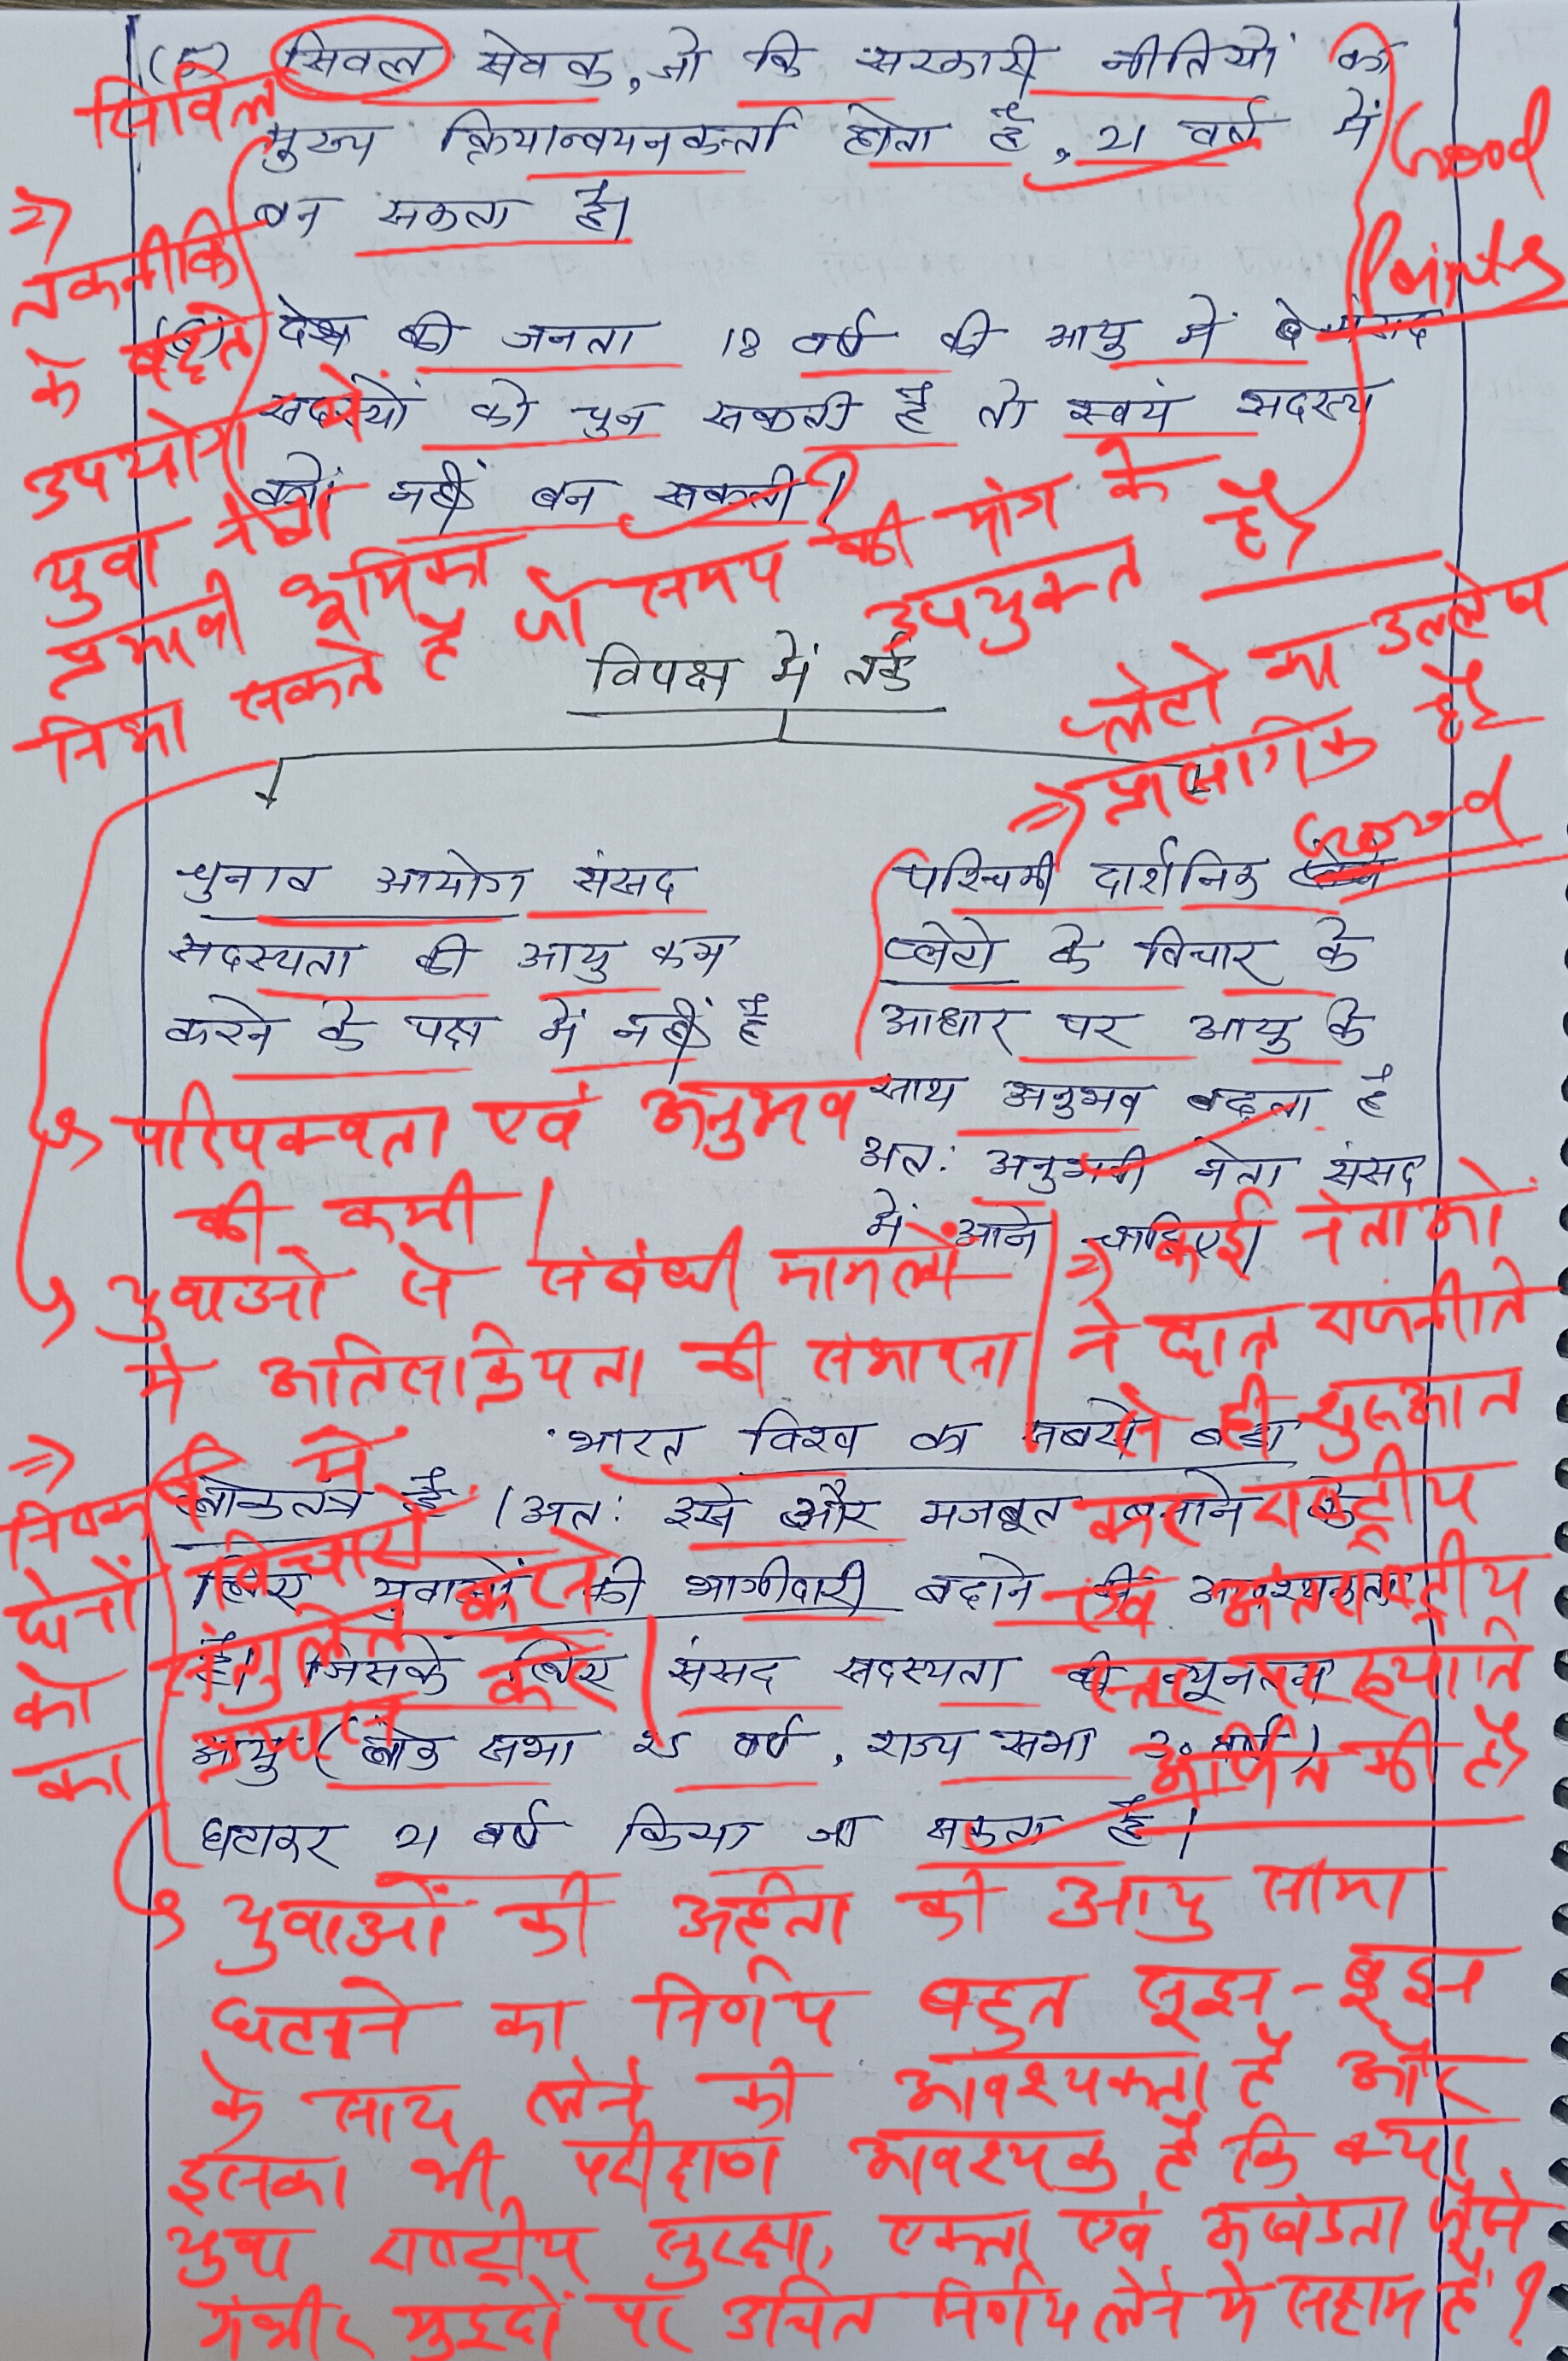 (5) सिवल सेवक, जो कि सरकारी नीतियों का
मुख्य क्रियान्वयनकर्ता होता है, 21 वर्ष में
बन सकता है।
सिविल
Good
Points
(6) देश की जनता 18 वर्ष की आयु में संसद
सदस्यों को चुन सकती है तो स्वयं सदस्य
क्यों नहीं बन सकती?
⇒
तकनीकि
के बढ़ते
उपयोग में
युवा नेता
प्रभावी भूमिका
निभा सकते है जो समय की मांग के
उपयुक्त है
विपक्ष में तर्क
प्लेटो का उल्लेख
प्रासांगिक है
Good
चुनाव आयोग संसद
सदस्यता की आयु कम
करने के पक्ष में नहीं है
पश्चिमी दार्शनिक
प्लेटो के विचार के
आधार पर आयु के
साथ अनुभव बढ़ता है
अत: अनुभवी नेता संसद
में आने चाहिए।
परिपक्वता एवं अनुभव
की कमी।
युवाओं से संबंधी मामलों
में अतिसक्रियता की संभावना
⇒ कई नेताओं
ने छात्र राजनीति
से ही शुरूआत
कर राष्ट्रीय
एवं अंतर्राष्ट्रीय
स्तर पर ख्याति
अर्जित की है
भारत विश्व का सबसे बड़ा
लोकतंत्र है। अत: इसे और मजबूत बनाने के
लिए युवाओं की भागीदारी बढ़ाने की आवश्यकता
है। जिसके लिए संसद सदस्यता की न्यूनतम
आयु (लोक सभा 25 वर्ष, राज्य सभा 30 वर्ष)
घटाकर 21 वर्ष किया जा सकता है।
⇒ में
विचारों
को करने
का संतुलित
प्रयास करें
युवाओं की अर्हता की आयु सीमा
घटाने का निर्णय बहुत सूझ-बूझ
के साथ लेने की आवश्यकता है और
इसका भी परीक्षण आवश्यक है कि क्या
युवा राष्ट्रीय सुरक्षा, एकता एवं अखंडता जैसे
गंभीर मुद्दों पर उचित निर्णय लेने में सक्षम है?